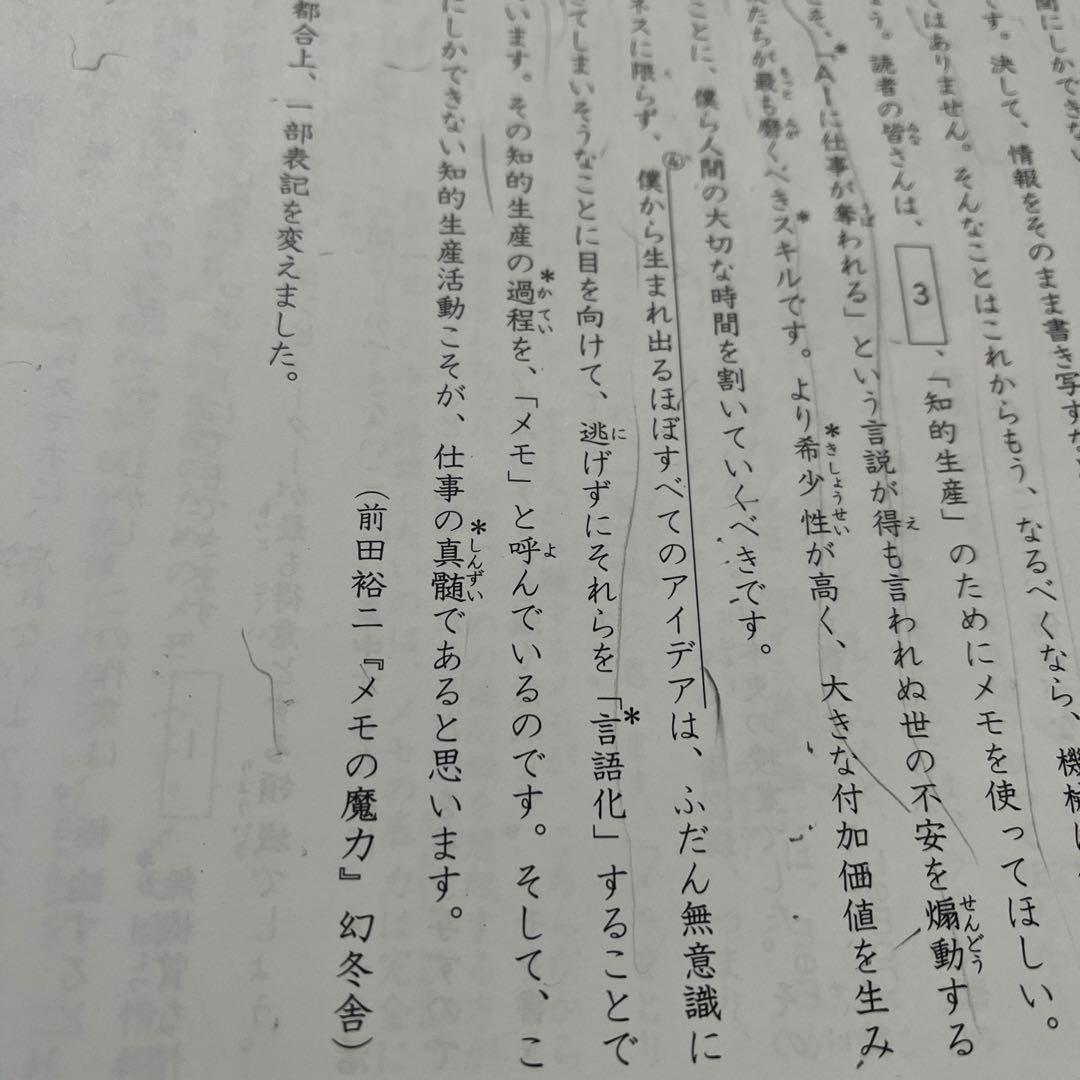 間にしかできない
です。決して、情報をそのまま書き写すな
ではありません。そんなことはこれからもう、なるべくなら、機械に
ょう。読者の皆さんは、3、「知的生産」のためにメモを使ってほしい。
そ、「AIに仕事が奪われる」という言説が得も言われぬ世の不安を煽動する
たちが最も磨くべき*スキルです。より*希少性が高く、大きな付加価値を生み
ことに、僕ら人間の大切な時間を割いていくべきです。
ネスに限らず、④僕から生まれ出るほぼすべてのアイデアは、ふだん無意識に
てしまいそうなことに目を向けて、逃げずにそれらを「*言語化」することで
います。その知的生産の*過程を、「メモ」と呼んでいるのです。そして、こ
にしかできない知的生産活動こそが、仕事の*真髄であると思います。
（前田裕二『メモの魔力』幻冬舎）
都合上、一部表記を変えました。